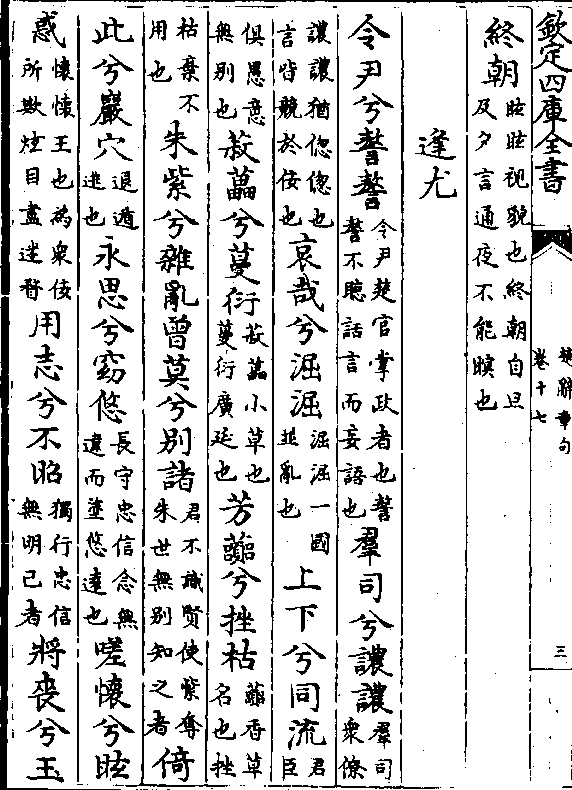 欽定四庫全書
楚辭章句
卷十七
三
終朝眐眐視貌也終朝自旦及夕言通夜不能瞑也
逢尤
令尹兮謷謷令尹楚官掌政者也謷謷不聽話言而妄語也羣司兮譨譨羣司衆僚
譨譨猶偬偬也言皆競於佞也哀哉兮淈淈淈淈一國並亂也上下兮同流君臣
俱愚意無別也菽藟兮蔓衍菽藟小草也蔓衍廣延也芳虈兮挫枯虈香草名也挫
枯棄不用也朱紫兮雜亂曾莫兮別諸君不識賢使紫奪朱世無別知之者倚
此兮巖穴退遁逃也永思兮窈悠長守忠信念無違而塗悠遠也嗟懷兮眩
惑懷懷王也為衆佞所欺炫目盡迷瞀用志兮不昭獨行忠信無明己者將喪兮玉